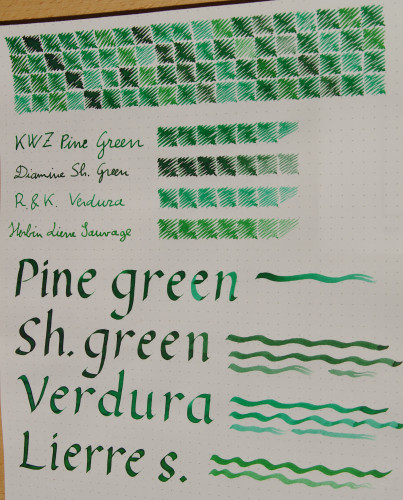 KWZ Pine Green
Diamine Sh. Green
R. & K. Verdura
Herbin Lierre Sauvage
Pine green
Sh. green
Verdura
Lierre s.